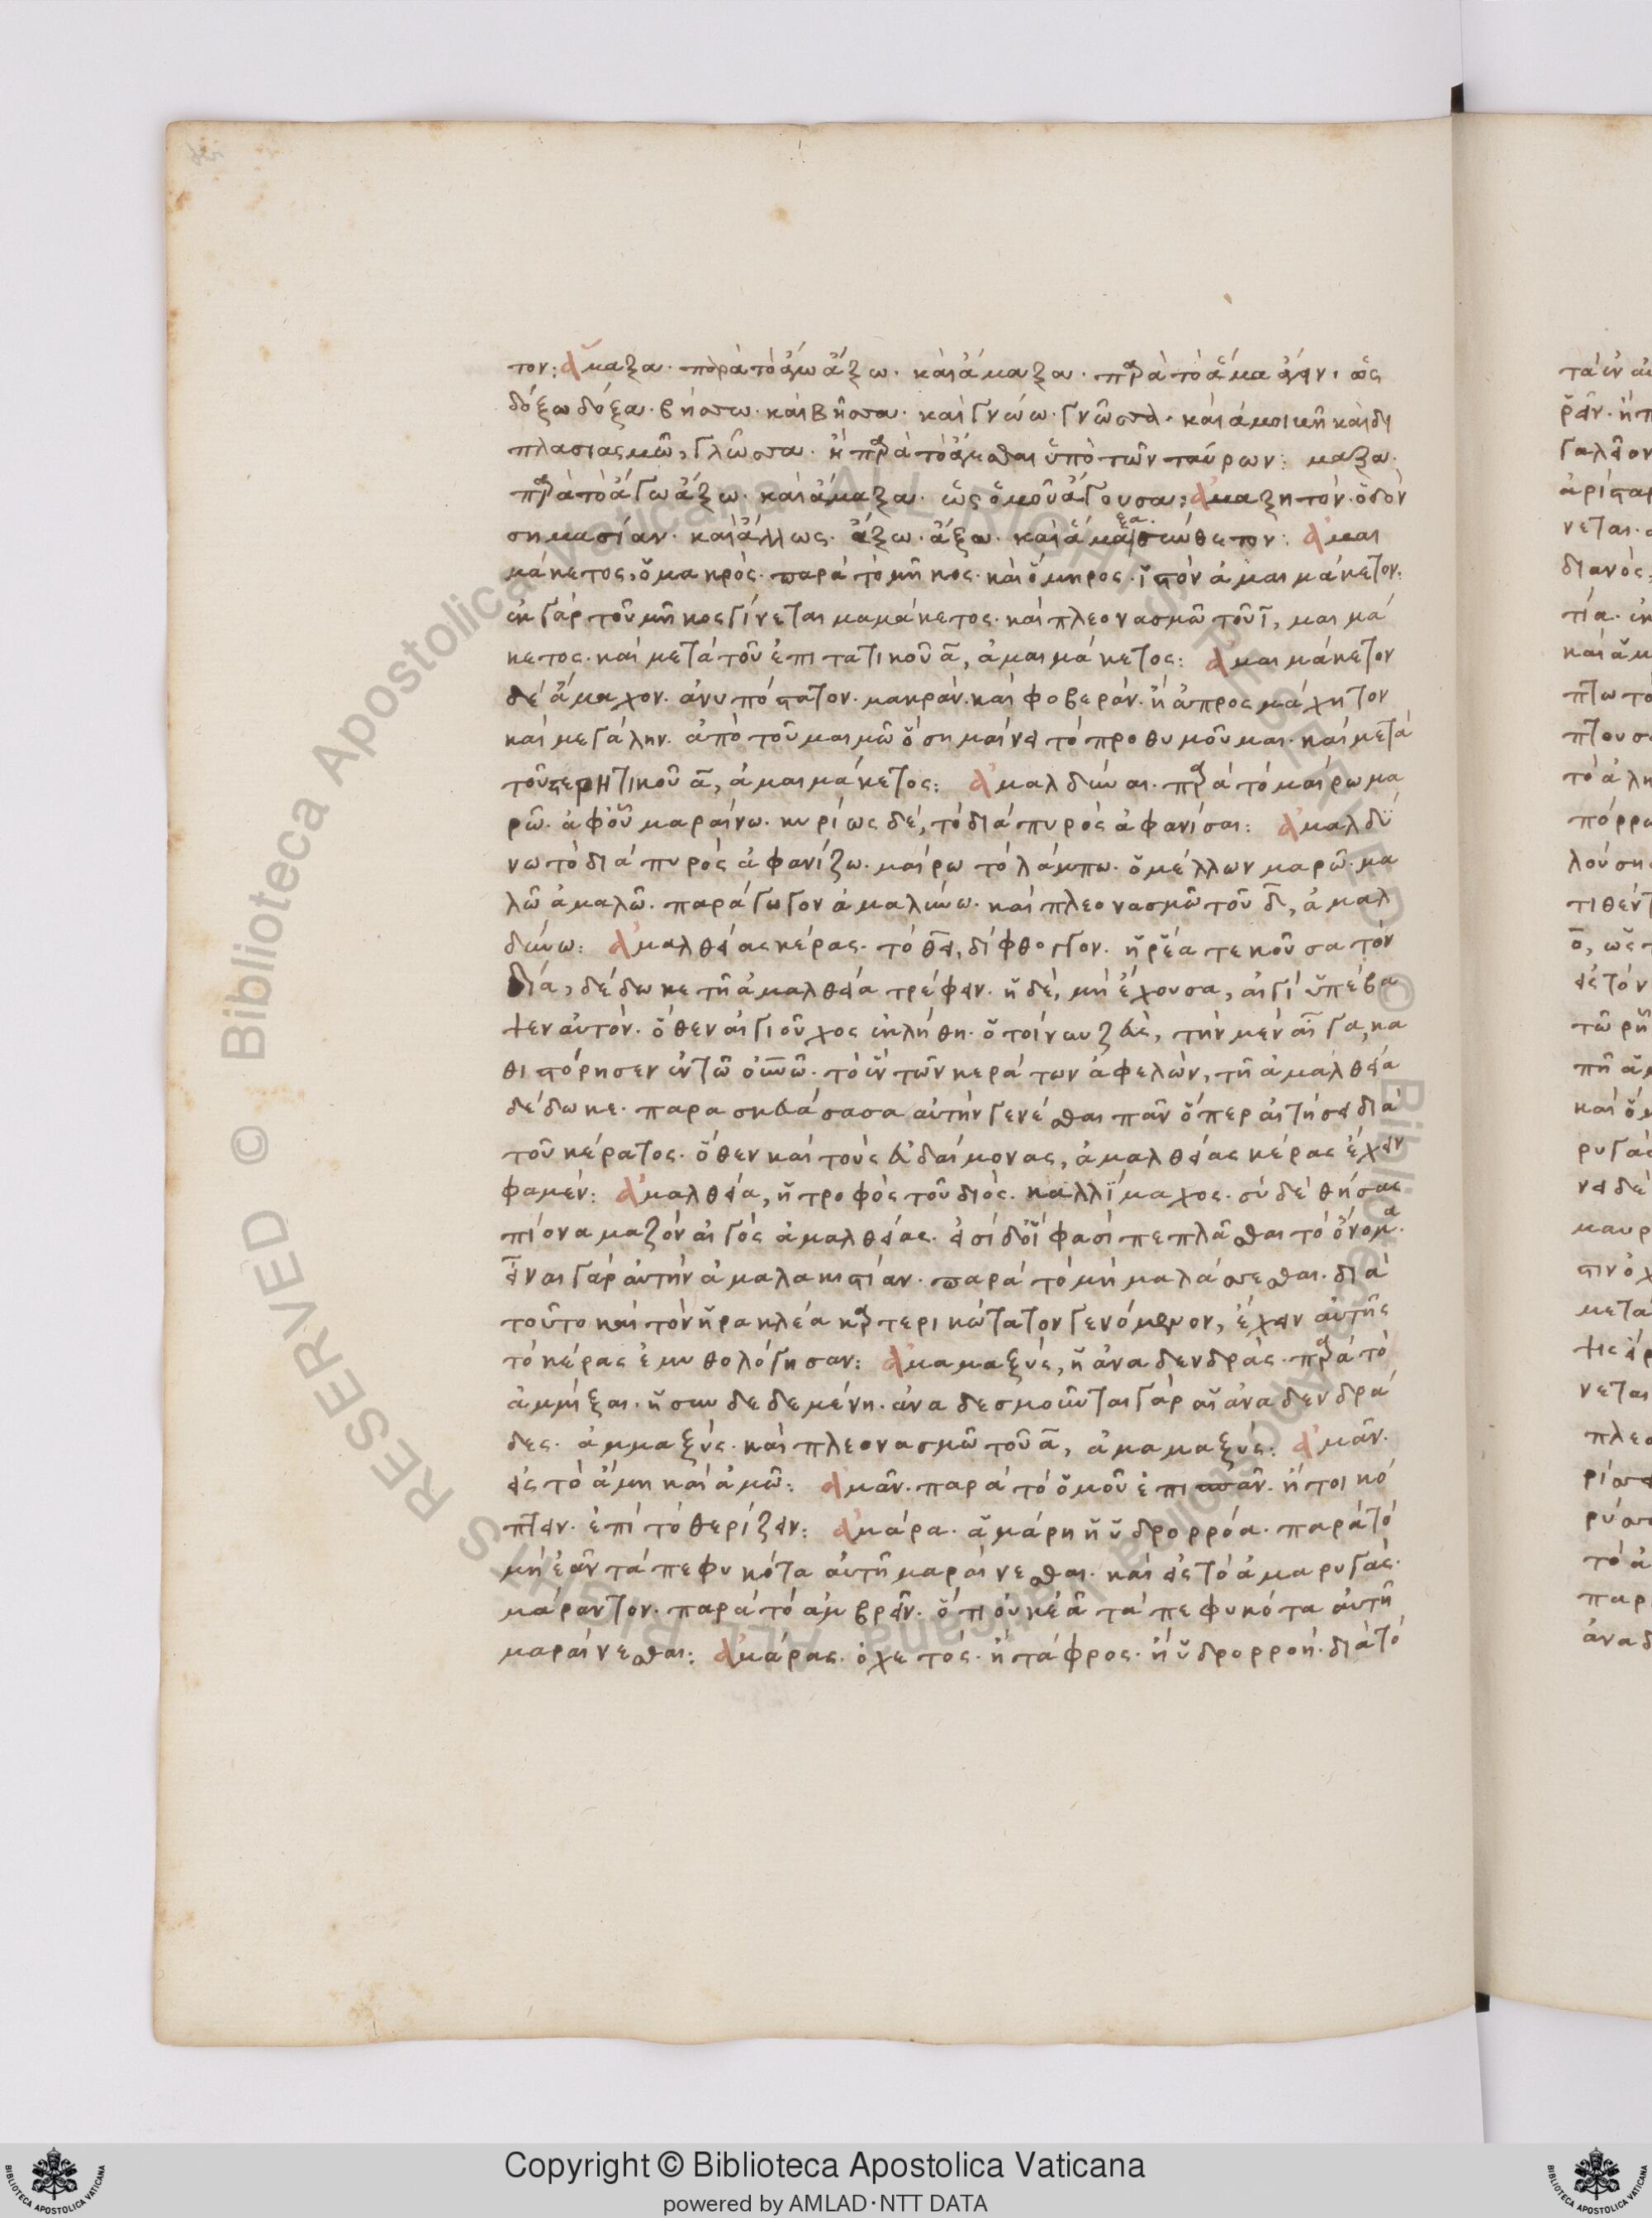 τον: ἅμαξα· παρὰ τὸ ἄγω ἄξω· καὶ ἅμαξα· παρὰ τὸ ἅμα ἄγειν· ὡς
δόξω δόξα· βήσσω· καὶ βῆσσα· καὶ γνώω· γνῶσσα· καὶ ἀμοιβῆ καὶ δι
πλασιασμῶ, γλῶσσα· ἢ παρὰ τὸ ἄγεσθαι ὑπὸ τῶν ταύρων: μαξα·
παρὰ τὸ ἄγω ἄξω· καὶ ἅμαξα· ὡς ὁμοῦ ἄγουσα: ἁμαξητὸν· ὁδὸν
σημασίαν· καὶ ἄλλως· ἄξω· ἄξα· καὶ ἅμαξα· συνθετον: ἀμαι
μάκετος, ὁ μακρός· παρὰ τὸ μῆκος· καὶ ὅμηρος· ἱστὸν ἀμαιμάκετον:
ἐκ γὰρ τοῦ μῆκος γίνεται μαμάκετος· καὶ πλεονασμῶ τοῦ ι, μαιμά
κετος· καὶ μετὰ τοῦ ἐπιτατικοῦ α, ἀμαιμάκετος: ἀμαιμάκετον
δὲ ἄμαχον· ἀνυπόστατον· μακρὰν· καὶ φοβερὰν· ἢ ἀπροσμάχητον
καὶ μεγάλην· ἀπὸ τοῦ μαιμῶ ὃ σημαίνει τὸ προθυμοῦμαι· καὶ μετὰ
τοῦ στερητικοῦ α, ἀμαιμάκετος: ἀμαλδῦναι· παρὰ τὸ μαίρω μα
ρῶ· ἀφ' οὗ μαραίνω· κυρίως δὲ, τὸ διὰ πυρὸς ἀφανίσαι: ἀμαλδύ
νω τὸ διὰ πυρὸς ἀφανίζω· μαίρω τὸ λάμπω· ὁ μέλλων μαρῶ· μα
λῶ ἀμαλῶ· παράγωγον ἀμαλύνω· καὶ πλεονασμῶ τοῦ δ, ἀμαλ
δύνω: ἀμαλθείας κέρας· τὸ θει, δίφθογγον· ἡ ῥέα τεκοῦσα τὸν
δία, δέδωκε τῆ ἀμαλθεία τρέφειν· ἡ δὲ, μὴ ἔχουσα, αἰγὶ ὑπέβα
λεν αὐτὸν· ὅθεν αἰγιοῦχος ἐκλήθη· ὁ τοίνυν ζεὺς, τὴν μὲν αἶγα, κα
θιστόρησεν ἐν τῶ οὐνῶ· τὸ ἓν τῶν κεράτων ἀφελὼν, τῆ ἀμαλθεία
δέδωκε· παρασκευάσασα αὐτὴν γενέσθαι πᾶν ὅπερ αἰτήσει διὰ
τοῦ κέρατος· ὅθεν καὶ τοὺς εὐδαίμονας, ἀμαλθείας κέρας ἔχειν
φαμὲν: ἀμαλθεία, ἡ τροφὸς τοῦ διός· καλλίμαχος· σὺ δὲ θήσαε
πίονα μαζὸν αἰγὸς ἀμαλθείας· εἰσὶ δ' οἵ φασὶ πεπλᾶσθαι τὸ ὄνομα·
εἶναι γὰρ αὐτὴν ἀμαλακιστίαν· παρὰ τὸ μὴ μαλάσσεσθαι· διὰ
τοῦτο καὶ τὸν ἡρακλέα καρτερικώτατον γενόμενον, ἔχειν αὐτῆς
τὸ κέρας ἐμυθολόγησαν: ἀμαμαξὺς, ἡ ἀναδενδρὰς· παρὰ τὸ
ἀμμίξαι· ἡ συνδεδεμένη· ἀναδεσμοῦνται γὰρ αἱ ἀναδενδρά
δες· ἀμμαξύς· καὶ πλεονασμῶ τοῦ α, ἀμαμαξύς: ἀμᾶν·
εἰς τὸ ἄμη καὶ ἀμῶ: ἀμᾶν· παρὰ τὸ ὁμοῦ ἐπισπᾶν· ἤτοι κό
πτειν· ἐπὶ τὸ θερίζειν: ἀμάρα· ἀμάρη ἡ ὑδρορρόα· παρὰ τὸ
μὴ ἐᾶν τὰ πεφυκότα αὐτῆ μαραίνεσθαι· καὶ εἰς τὸ ἀμαρυγάς·
μάραντον· παρὰ τὸ ἀμβρεῖν· ὅτι οὐκ ἐᾶ τὰ πεφυκότα αὐτῆ
μαραίνεσθαι: ἀμάρας· ὀχετός· ἢ τάφρος· ἢ ὑδρορροή· διὰ τὸ
Copyright © Biblioteca Apostolica Vaticana
powered by AMLAD·NTT DATA